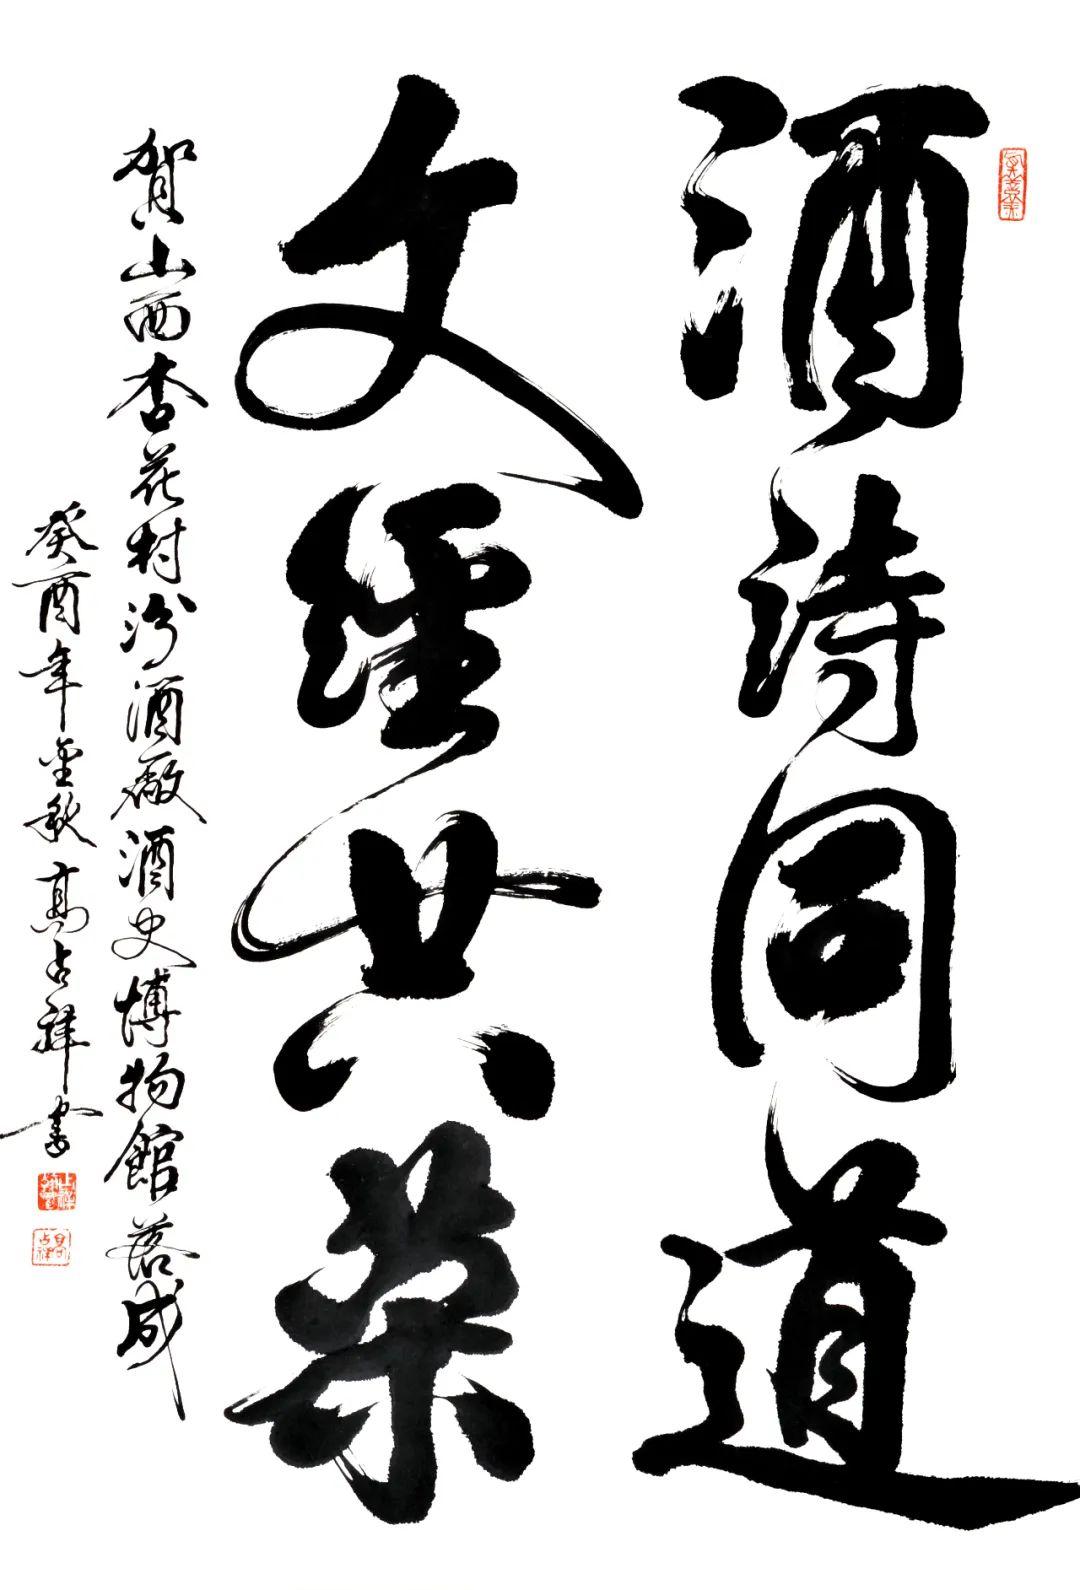 酒诗同道
文经共荣
賀山西杏花村汾酒廠酒史博物館落成
癸酉年金秋高占祥書